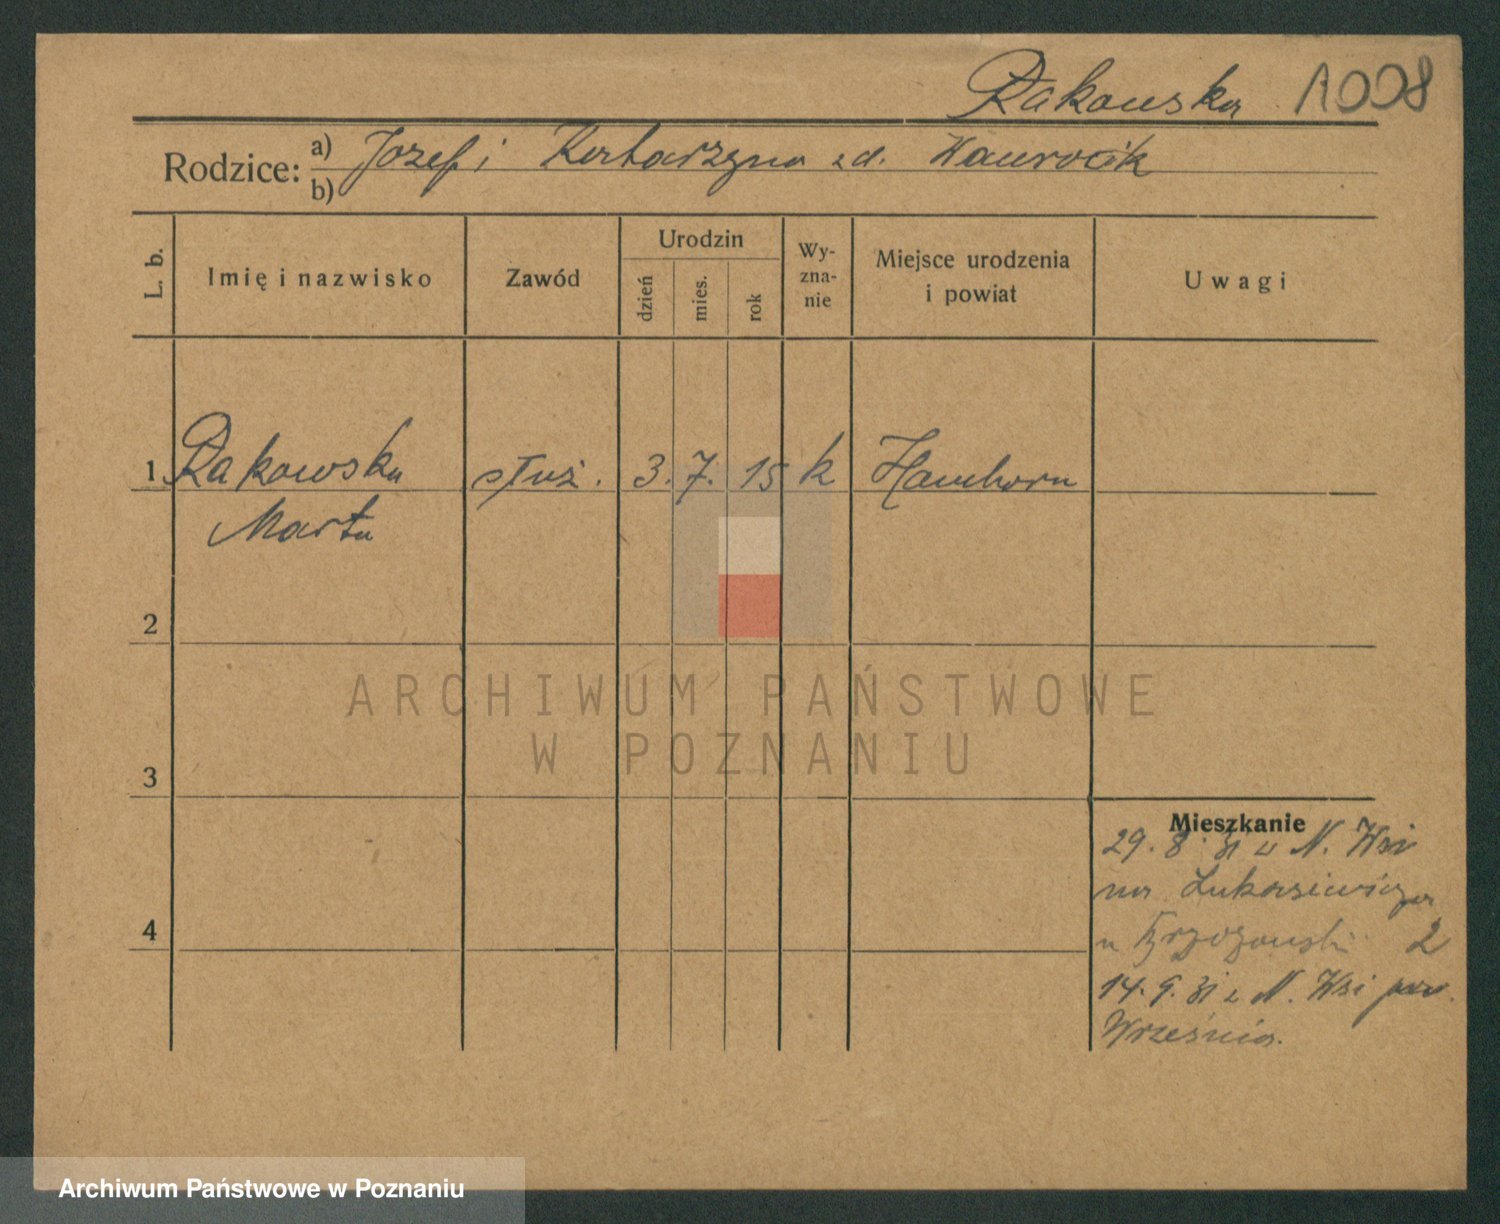 Rakowska 1008
Rodzice: a) Józef i Katarzyna z d. Wawrocik
b)
L. b.
Imię i nazwisko
Zawód
Urodzin
dzień
mies.
rok
Wy-
zna-
nie
Miejsce urodzenia
i powiat
Uwagi
1 Rakowska służ. 3. 7. 15 k Hamborn
Marta
2
3
4
Mieszkanie
29. 8. 31 z N. Wsi
na Łukasiewicza
u Brzozowski 2
14. 9. 31 z N. Wsi pow.
Września.
ARCHIWUM PAŃSTWOWE
W POZNANIU
Archiwum Państwowe w Poznaniu